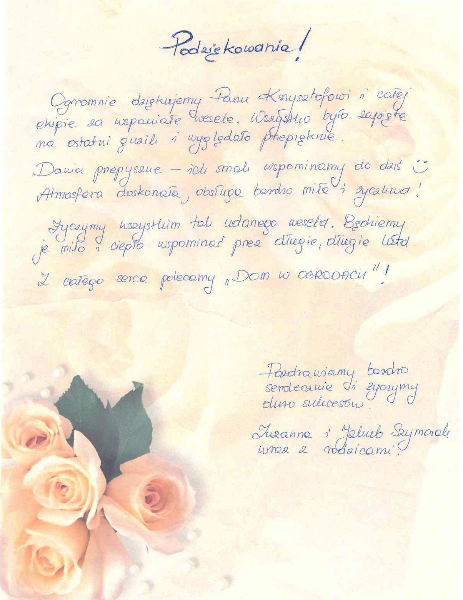 Podziękowania!
Ogromnie dziękujemy Panu Krzysztofowi i całej
ekipie za wspaniałe wesele. Wszystko było zapięte
na ostatni guzik i wyglądało przepięknie.
Dania przepyszne – ich smak wspominamy do dziś ☺
Atmosfera doskonała, obsługa bardzo miła i życzliwa!
Życzymy wszystkim tak udanego wesela. Będziemy
je miło i ciepło wspominać przez długie, długie lata
Z całego serca polecamy „DOM W OGRODACH"!
Pozdrawiamy bardzo
serdecznie i życzymy
dużo sukcesów
Zuzanna i Jakub Szymczak
wraz z rodzicami!